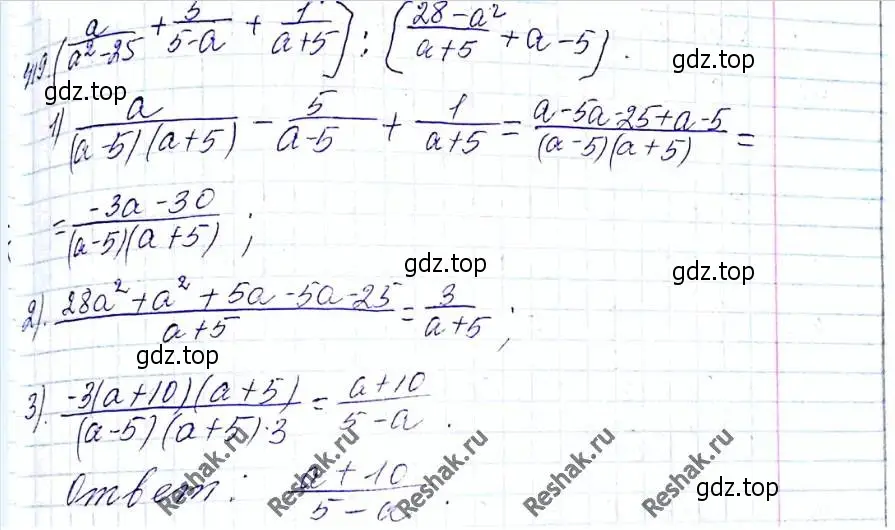 419. (a/(a²-25) + 5/(5-a) + 1/(a+5)) : ((28-a²)/(a+5) + a-5).
gdz.top
gdz.top
1) a/((a-5)(a+5)) - 5/(a-5) + 1/(a+5) = (a-5a-25+a-5)/((a-5)(a+5)) =
= (-3a-30)/((a-5)(a+5));
gdz.top
gdz.top
2). (28a²+a²+5a-5a-25)/(a+5) = 3/(a+5);
gdz.top
3). (-3(a+10)(a+5))/((a-5)(a+5)·3) = (a+10)/(5-a).
Ответ: (a+10)/(5-a).
Reshak.ru
Reshak.ru
Reshak.ru
Reshak.ru
gdz.top